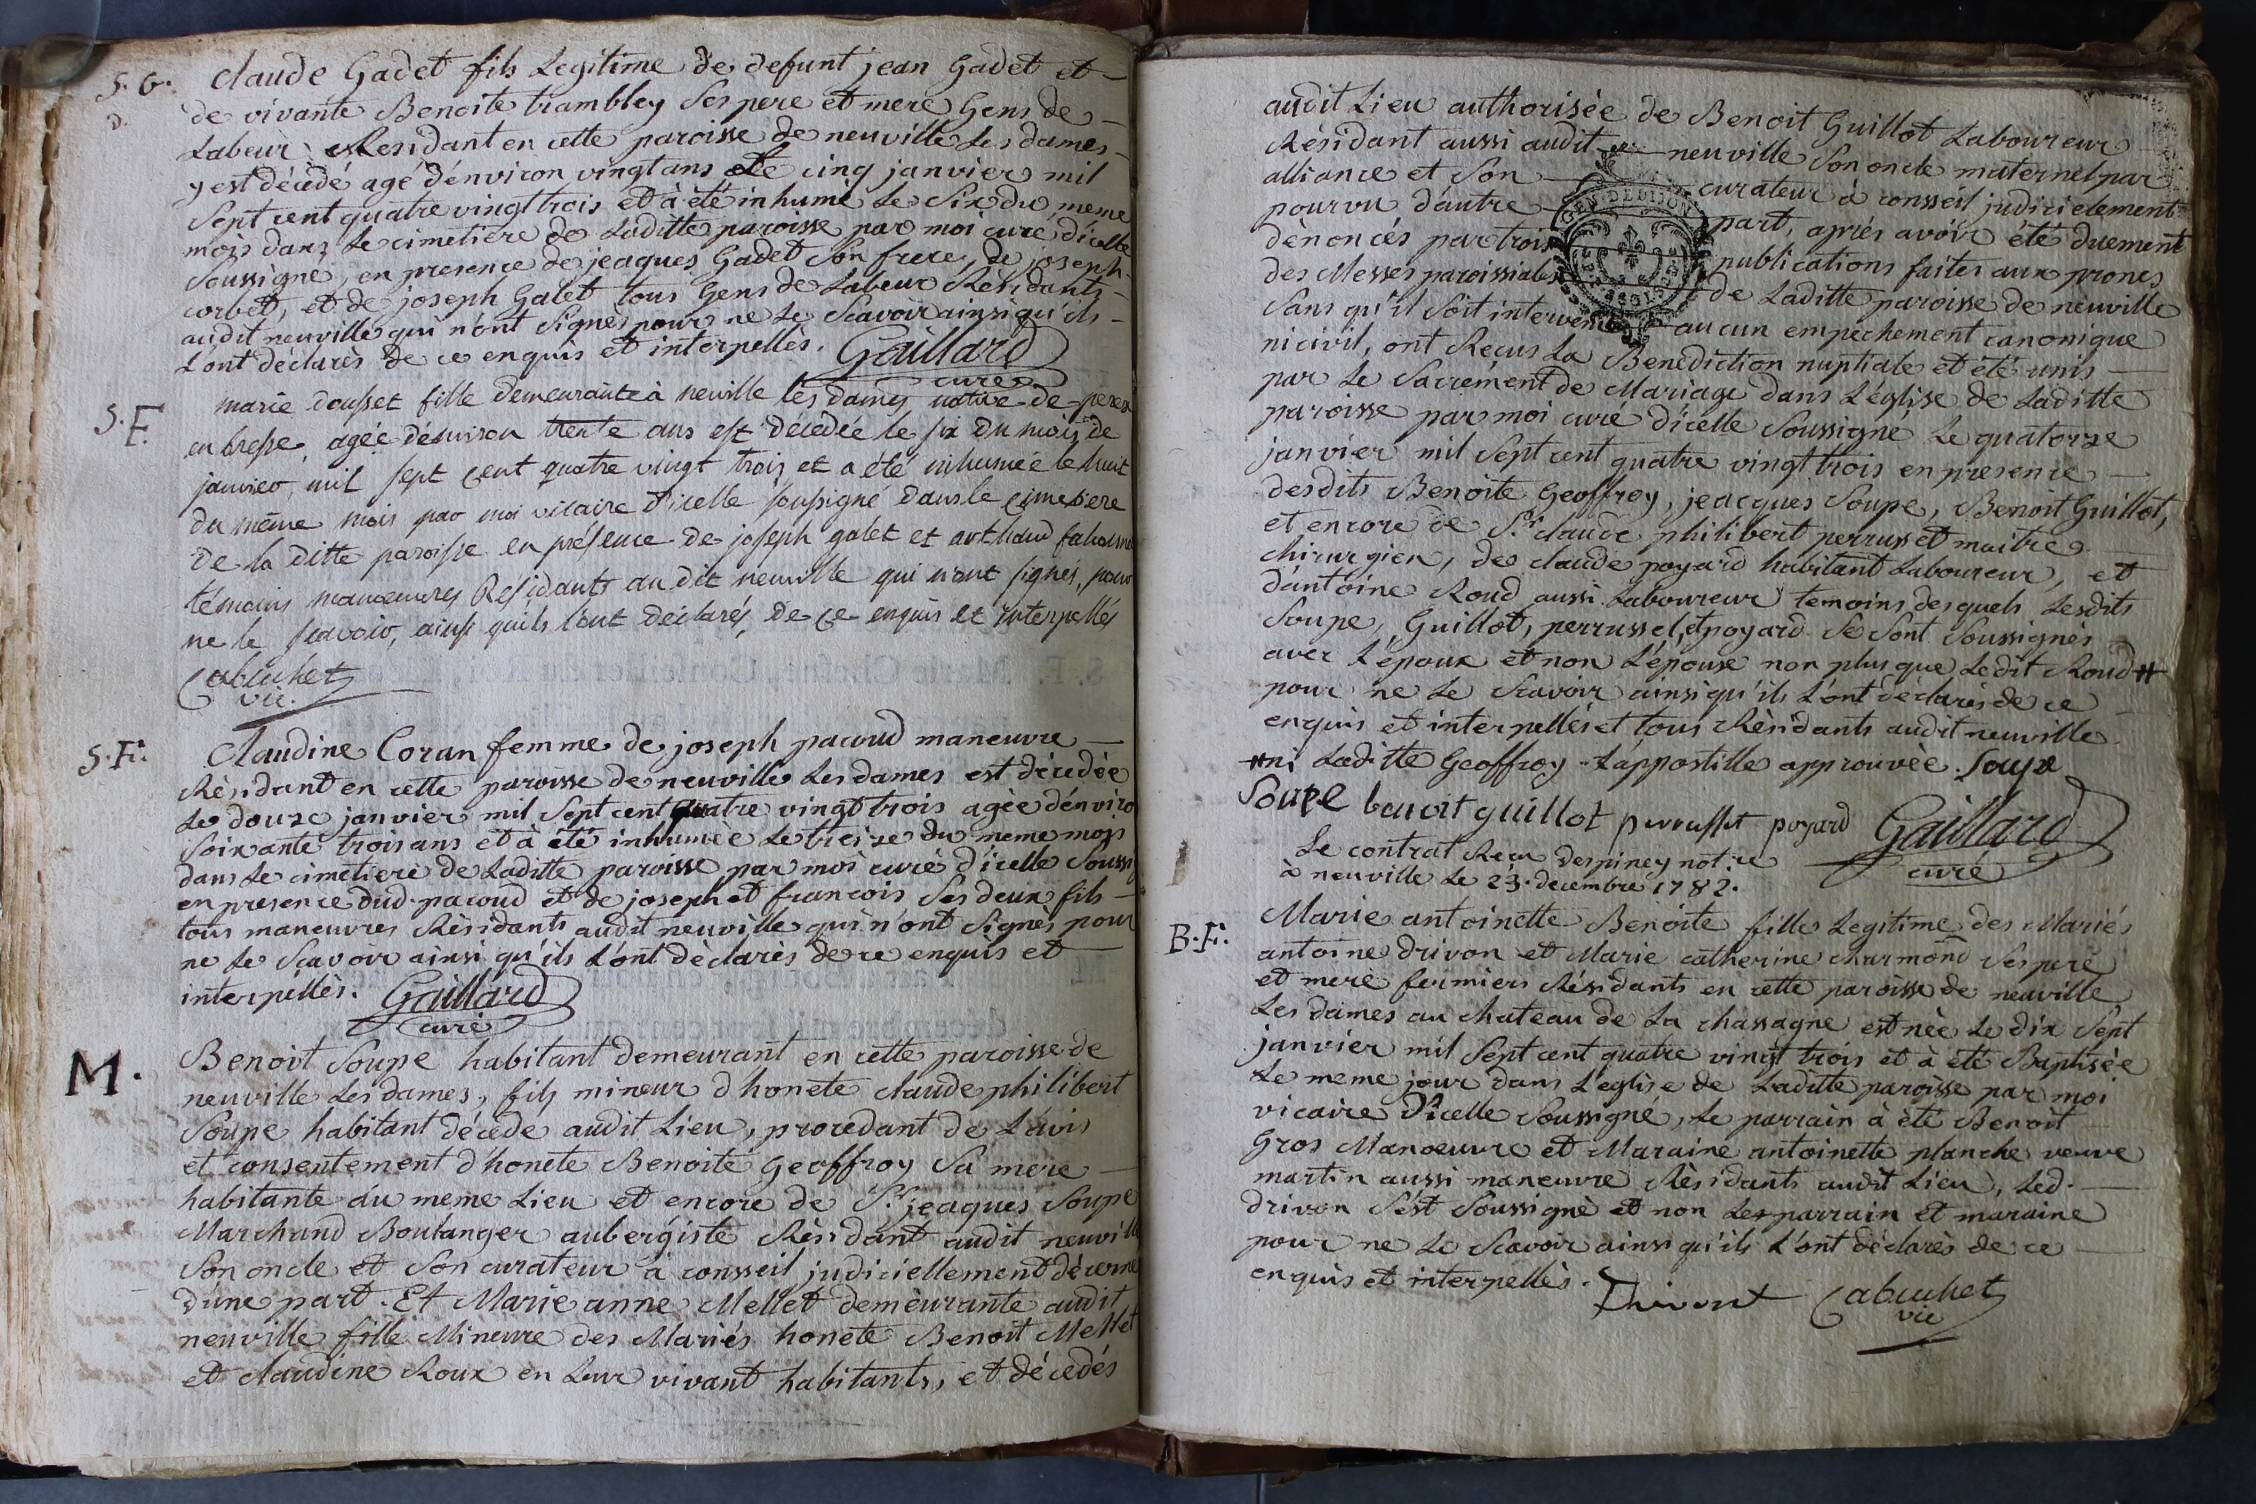 S. G. Claude Gadet fils Legitime de defunt jean Gadet et
D. de vivante Benoite trambley Ses pere et mere Gens de
Labeur Residant en cette paroisse de neuville Les dames
y est décédé agé d'environ vingt ans le cinq janvier mil
Sept cent quatre vingt trois et à été inhumé Le Six du meme
mois dans Le cimetiere de Laditte paroisse par moi curé d'icelle
Soussigné, en presence de jeaques Gadet Son frere, de joseph
corbet, et de joseph Galet tous Gens de Labeur Résidants
audit neuville qui n'ont Signés pour ne Le Scavoir ainsi qu'ils
L'ont déclarés de ce enquis et interpellés. Gaillard
curé
S. F. marie dousset fille demeurante à neuville les dames native de perex
en bresse agée d'environ trente ans est décédée le six du mois de
janvier mil sept cent quatre vingt trois et a été inhumée le huit
du même mois par moi vicaire d'icelle soussigné dans le cimetiere
de la ditte paroisse en présence de joseph galet et arthaud
témoins manoeuvres Résidants au dit neuville qui n'ont signés, pour
ne le scavoir, ainsi qu'ils l'ont déclarés, de ce enquis et interpellés
Cabuchet
vic.
S. F. Claudine Coran femme de joseph pacoud maneuvre
Résidant en cette paroisse de neuville Les dames est décedée
Le douze janvier mil Sept cent quatre vingt trois agée d'enviro
Soixante trois ans et à été inhumée Le treize du meme mois
dans Le cimetiere de Laditte paroisse par moi curé d'icelle Soussi
en presence dud. pacoud et de joseph et francois Ses deux fils
tous maneuvres Résidants audit neuville qui n'ont Signés pour
ne Le Scavoir ainsi qu'ils L'ont déclarés de ce enquis et
interpellés. Gaillard
curé
M. Benoit Soupe habitant demeurant en cette paroisse de
neuville Les dames, fils mineur d'honete claude philibert
Soupe habitant décedé audit Lieu, procedant de L'avis
et consentement d'honete Benoite Geoffroy Sa mere
habitante du meme Lieu et encore de Sr. jeaques Soupe
Marchand Boulanger aubergiste Résidant audit neuville
Son oncle et Son curateur à consseil judiciellement décerné
d'une part. Et Marie anne Mellet demeurante audit
neuville fille Mineure des Mariés honete Benoit Mellet
et claudine Roux en Leur vivant habitants, et décedés
audit Lieu authorisée de Benoit Guillot Laboureur
Résidant aussi audit neuville Son oncle maternel par
alliance et Son curateur à consseil judicielement
pourvu d'autre part, aprés avoir été duement
dénoncés par trois publications faites aux prones
des Messes paroissiales de Laditte paroisse de neuville
Sans qu'il Soit intervenu aucun empechement canonique
ni civil, ont Recus La Benediction nuptiale et été unis
par Le Sacrement de Mariage dans L'église de Laditte
paroisse par moi curé d'icelle Soussigné Le quatorze
janvier mil Sept cent quatre vingt trois en presence
desdits Benoite Geoffroy, jeacques Soupe, Benoit Guillot,
et encore de Sr. claude philibert perrusset maitre
chirurgien, de claude poyard habitant Laboureur, et
d'antoine Roud aussi Laboureur temoins desquels Lesdits
Soupe, Guillot, perrussel, et poyard Se Sont Soussignés
avec L'époux et non L'épouse non plus que Ledit Roud #
pour ne Le Scavoir ainsi qu'ils L'ont déclarés de ce
enquis et interpellés et tous Résidants audit neuville
# ni Laditte Geoffroy L'appostille approuvée. Soupe
Soupe benoit guillot perrusset poyard Gaillard
curé
Le contrat Recu Despiney not.re
à neuville Le 23. decembre 1782.
B. F. Marie antoinette Benoite fille Legitime des Mariés
antoine drivon et Marie catherine charmond Ses pere
et mere fermiers Résidants en cette paroisse de neuville
Les dames au chateau de La chassagne est née Le dix Sept
janvier mil Sept cent quatre vingt trois et à été Baptisée
Le meme jour dans L'eglise de Laditte paroisse par moi
vicaire d'icelle Soussigné, Le parrain à été Benoit
Gros Manoeuvre et Maraine antoinette planche veuve
martin aussi maneuvre Résidants audit Lieu, Led.
drivon S'est Soussigné et non Les parrain et maraine
pour ne Le Scavoir ainsi qu'ils L'ont déclarés de ce
enquis et interpellés. Cabuchet
vic